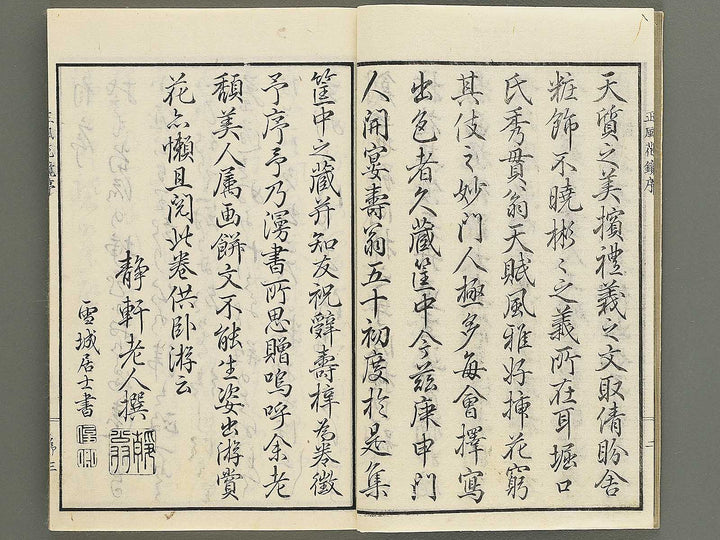 正風花鏡序
天質之美擯禮義之文取倩盼舍
粧飾不曉彬〻之義所在耳堀口
氏秀貫翁天賦風雅好挿花窮
其伎之妙門人極多每會擇寫
出色者久藏筐中今茲庚申門
人開宴壽翁五十初度於是集
二
筐中之藏并知友祝辭壽梓為卷徵
予序予乃漫書所思贈嗚呼余老
頽美人属画餅文不能生姿出游賞
花亦懶且閲此卷供卧游云
靜軒老人撰
雪城居士書
三